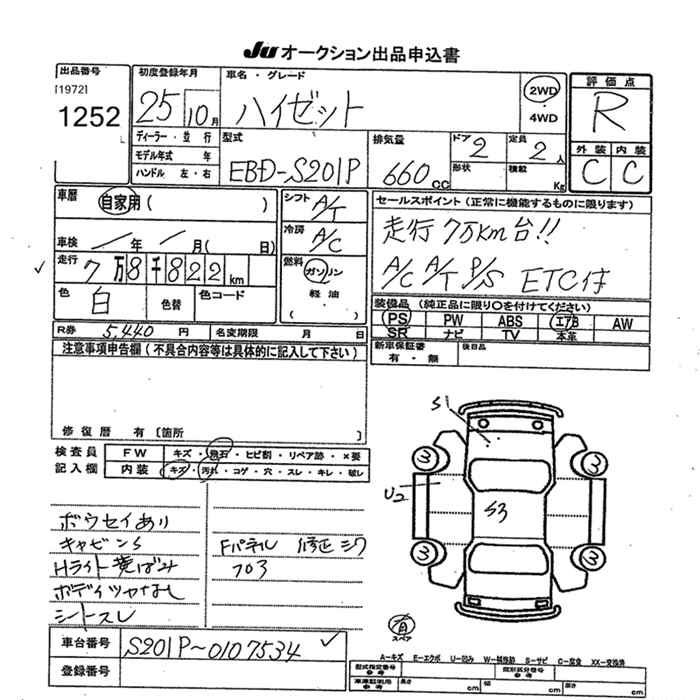 Ju オークション出品申込書
出品番号
[1972]
1252
初度登録年月
25 10月
車名・グレード
ハイゼット
2WD
・
4WD
評価点
R
外装 内装
C C
ディーラー・並行
モデル年式 年
ハンドル 左・右
型式
EBD-S201P
排気量
660 cc
ドア 2
形状
定員 2人
積載 Kg
車歴
自家用( )
車検 / 年 / 月( 日)
走行 7万8千822km
色 白 色替 色コード
R券 5,440 円 名変期限 月 日
シフト A/T
冷房 A/C
燃料 ガソリン
軽油
( )
セールスポイント(正常に機能するものに限ります)
走行7万km台!!
A/C A/T P/S ETC付
装備品(純正品に限り○を付けてください)
PS PW ABS エアB AW
SR ナビ TV 本革
新車保証書 後日品
有・無
注意事項申告欄(不具合内容等は具体的に記入して下さい)
修復歴 有〔箇所 〕
検査員 FW キズ・飛石・ヒビ割・リペア跡・×要
記入欄 内装 キズ・汚れ・コゲ・穴・スレ・キレ・破レ
ボウセイあり
キャビンS
Hライト黄ばみ
ボデイツヤなし
シートスレ
Fパネル 修正シワ
703
S1
3 3
U2
S3
3 3
有
スペア
車台番号 S201P~0107534
登録番号
A-キズ E-エクボ U-凹み W-補修跡 S-サビ C-腐食 XX-交換済
型式指定番号
参考
類別区分番号
参考
車庫証明用
参考
長さ cm 幅 cm 高さ cm